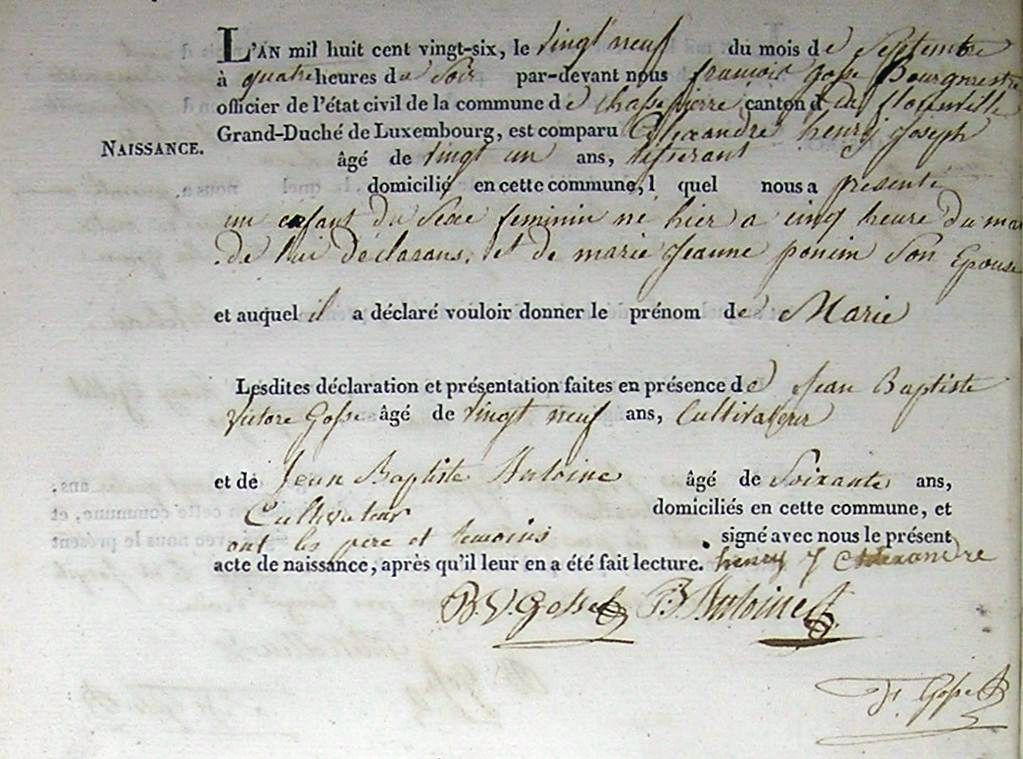 L'AN mil huit cent vingt-six, le vingt neuf du mois de Septembre
à quatre heures du Soir par-devant nous francois Gosse Bourgmestre
officier de l'état civil de la commune de Chassepierre canton de florenville
Grand-Duché de Luxembourg, est comparu Alexandre henry Joseph
NAISSANCE.
âgé de vingt un ans, tisserant
domicilié en cette commune, l quel nous a presenté
un enfant du Sexe feminin né hier a cinq heure du mat
de lui declarans, et de marie Jeanne Son Epouse
et auquel il a déclaré vouloir donner le prénom de Marie
Lesdites déclaration et présentation faites en présence de Jean Baptiste
Victore Gosse âgé de vingt neuf ans, Cultivateur
et de Jean Baptiste Antoine âgé de Soixante ans,
Cultivateur domiciliés en cette commune, et
ont les pere et temoins signé avec nous le présent
acte de naissance, après qu'il leur en a été fait lecture. henry J Alexandre
B. V. Gosse B. Antoine
F. Gosse